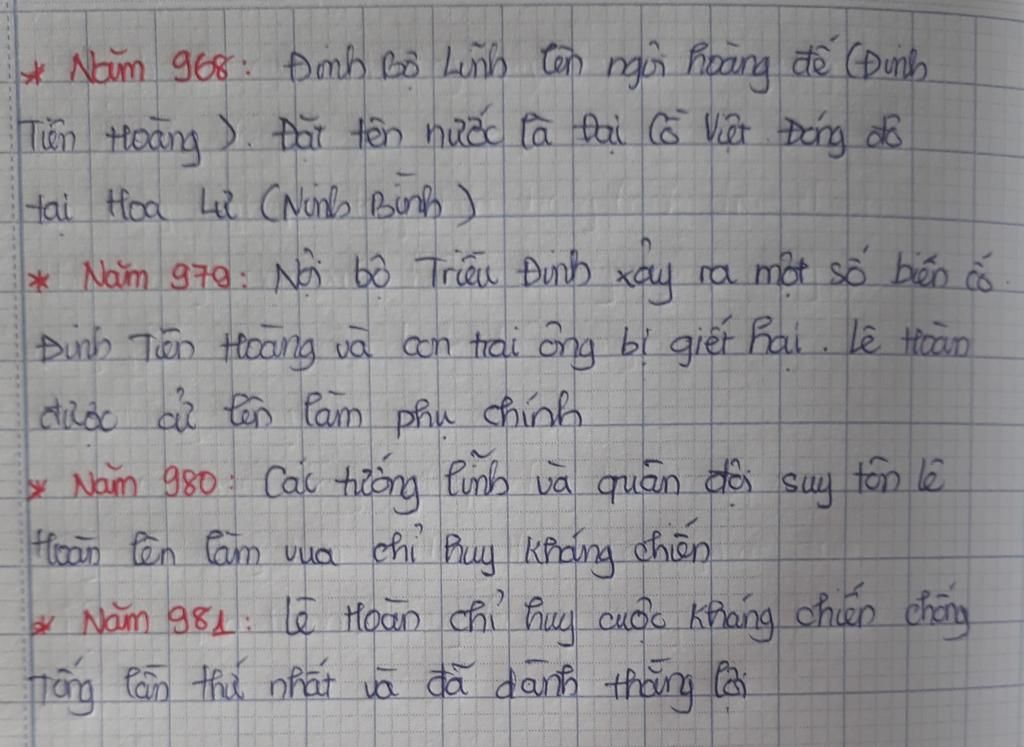 * Năm 968: Đinh Bộ Lĩnh lên ngôi hoàng đế (Đinh
Tiên Hoàng). Đặt tên nước là Đại Cồ Việt. Đóng đô
tại Hoa Lư (Ninh Bình)
* Năm 979: Nội bộ Triều Đình xảy ra một số biến cố.
Đinh Tiên Hoàng và con trai ông bị giết hại. Lê Hoàn
được cử lên làm phụ chính
* Năm 980: Các tướng lĩnh và quân đội suy tôn lê
Hoàn lên làm vua chỉ huy kháng chiến
* Năm 981: Lê Hoàn chỉ huy cuộc kháng chiến chống
Tống lần thứ nhất và đã dành thắng lợi